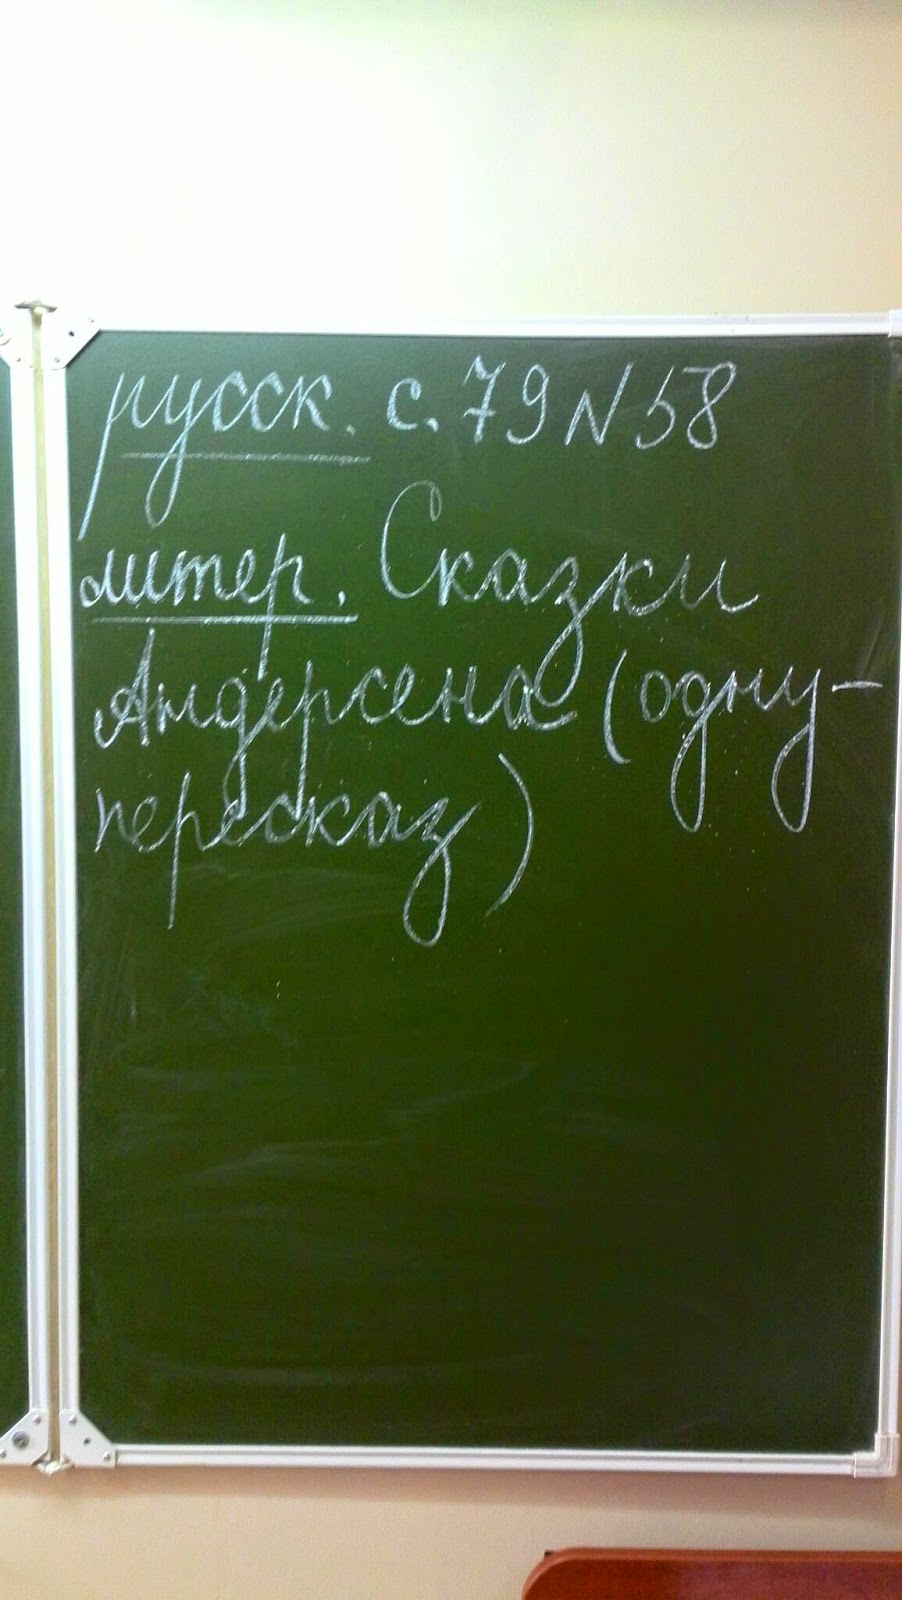 русск. с. 79 N 58
литер. Сказки
Андерсена (одну-
пересказ)